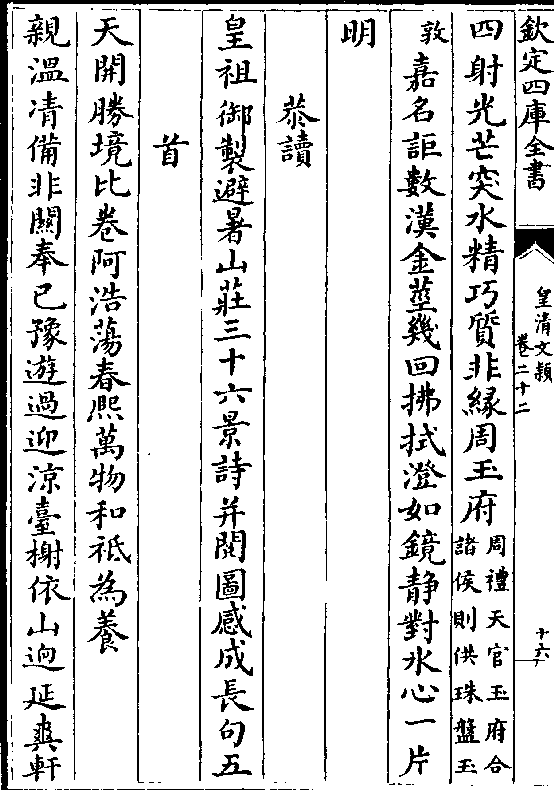 欽定四庫全書
皇清文穎
卷二十二
十六
四射光芒突水精巧質非緣周玉府
周禮天官玉府合
諸侯則供珠盤玉
敦
嘉名詎數漢金莖幾回拂拭澄如鏡靜對氷心一片
明
恭讀
皇祖御製避暑山莊三十六景詩并閱圖感成長句五
首
天開勝境比卷阿浩蕩春熈萬物和祗為養
親溫凊備非關奉已豫遊過迎涼臺榭依山逈延爽軒